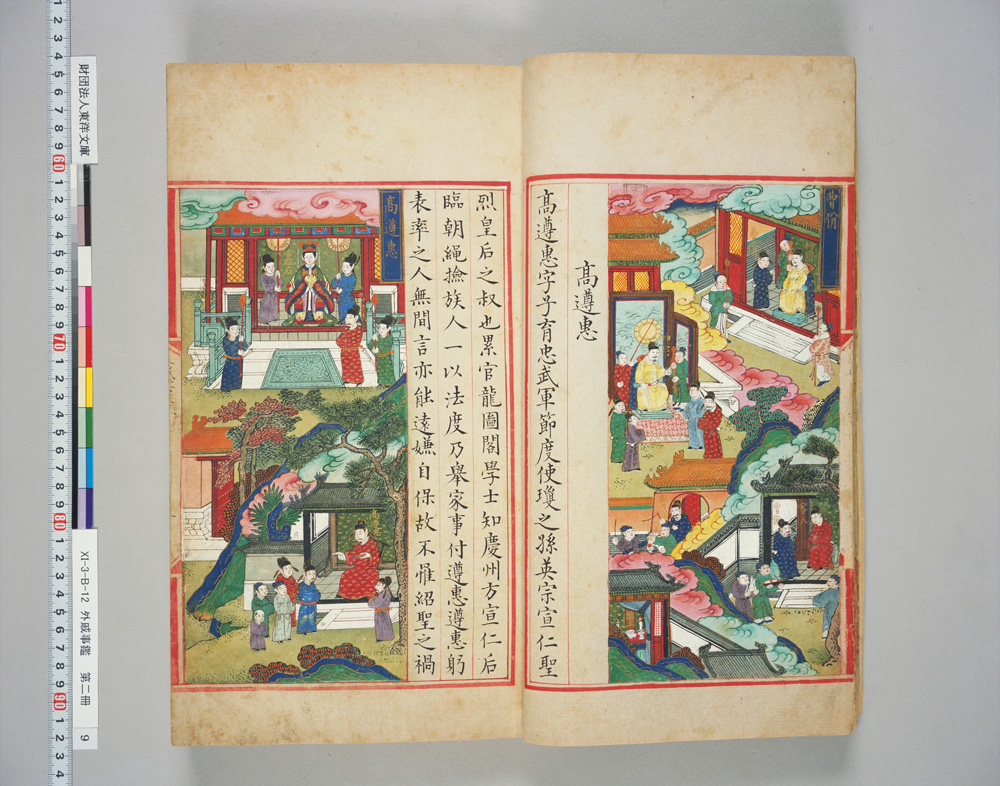 曹佾
高遵惠
高遵惠字子育忠武軍節度使瓊之孫英宗宣仁聖
烈皇后之叔也累官龍圖閣學士知慶州方宣仁后
臨朝繩撿族人一以法度乃舉家事付遵惠遵惠躬
表率之人無間言亦能遠嫌自保故不罹紹聖之禍
高遵惠
財団法人東洋文庫
XI-3-B-12 外戚事鑑 第二冊 9
1 2 3 4 5 6 7 8 9 60 1 2 3 4 5 6 7 8 9 70 1 2 3 4 5 6 7 8 9 80 1 2 3 4 5 6 7 8 9 90 1 2 3 4